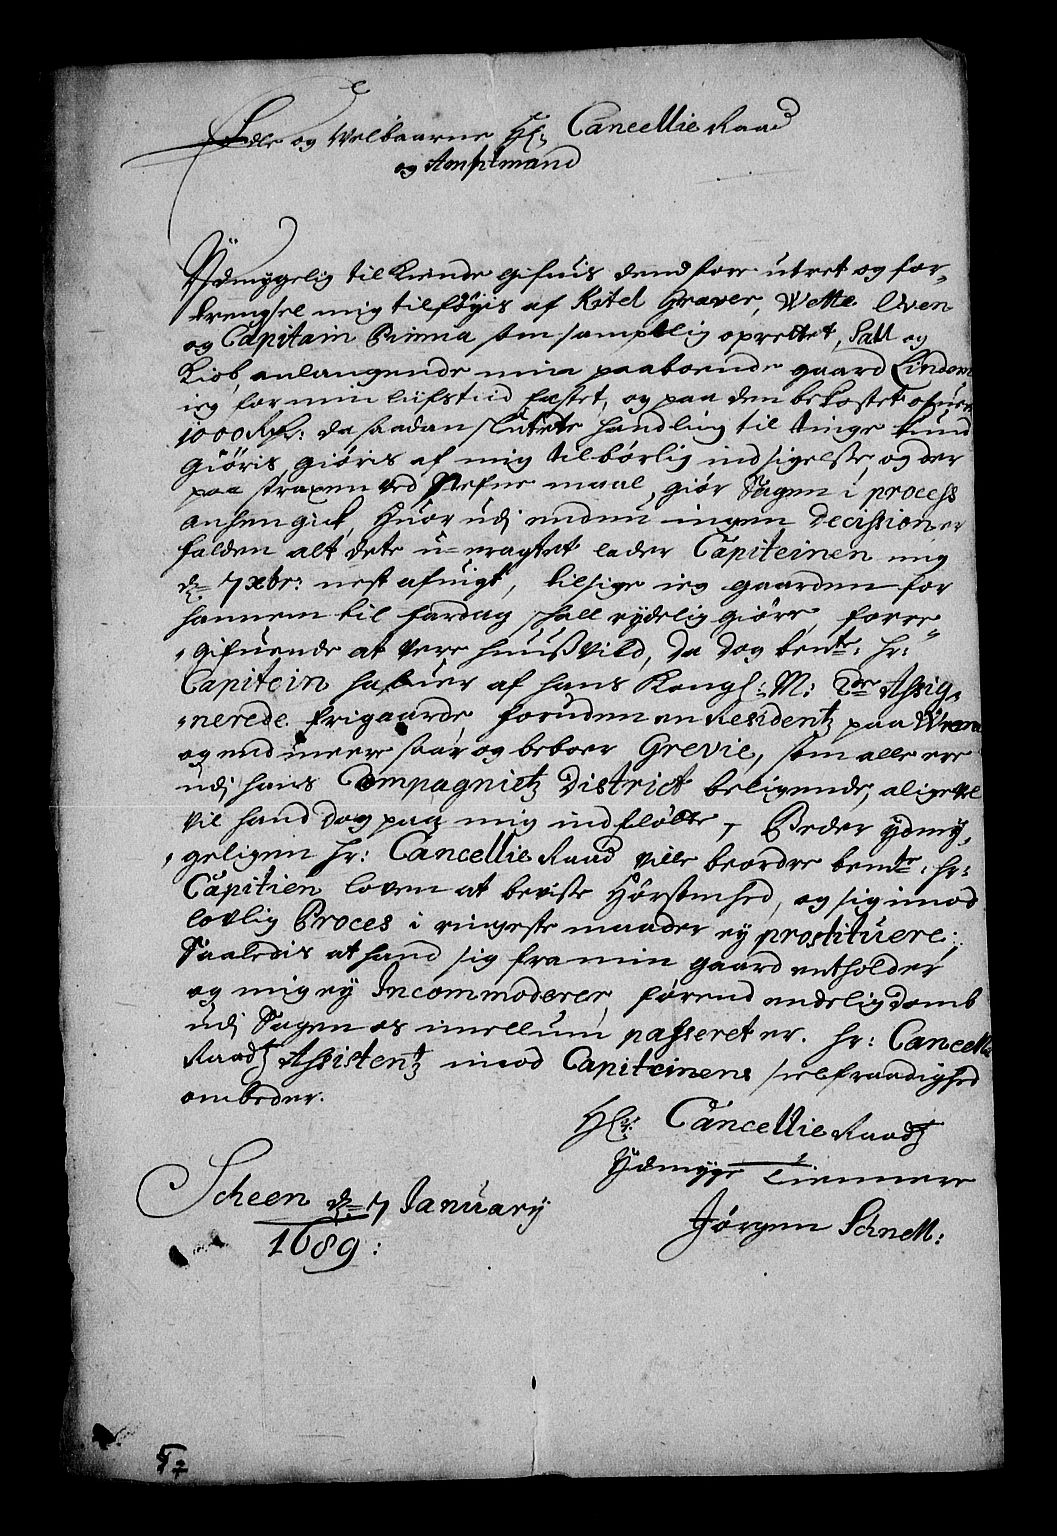 Edle og Velbaarne Hr: Cancellie Raad
og Amptmand
Ydmygelig tilkiende gifuis dend stoer utret og for-
trengsel mig tilføyis af Kitel Graver, Vette Oven
og Capitain Prima som samptlig oprettet, Sall og
Kiøb, anlangende min paaboende gaard Lindom
ieg for min lifstiid festet, og paa den bekostet ofuer
1000 Rdr: da saadan sluttete handling til tinge kund
giøris, giøris af mig tilbørlig indsigelsse, og der
paa straxen ved Stefne maal, giør Sagen i process
anhengick, Huor udj enden ingen Decission er
falden alt dete u=eragtet lader Capiteinen mig
dn 7 xbr: nest afuigt, tilsige ieg gaarden for
hannem til fardag skall rydelig giøre, forre
gifuende at vere huusvild, Da dog bemte: hr:
Capitein hafuer af hans Kongl: M: De Assig-
nerede frigaarde, foruden en Residentz paa
og end meere faar og beboer Grevie, som alle ere
udj hans Compagnietz District beligende, aligevel
vil hand dog paa mig indfløtte, Beder ydmy-
geligen hr: Cancellie Raad ville beordre bemte: hr:
Capitien loven at bevisse Hørsomhed, og sig imod
lovlig Proces i ringeste maader ey prostituere;
Saaledis at hand sig fra min gaard entholder
og mig ey Incommoderer, førend endelig domb
udj Sagen os imellum passeret er. hr: Cancelli
Raadtz Assistentz imod Capiteinens sielfraadighed
ombeder.
Hr: Cancellie Raadtz
Ydmyge Tiennere
Scheen dn 7 January
1689:
Jørgen Schnell: